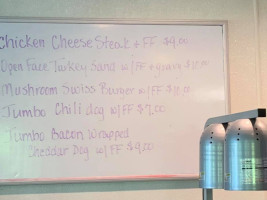 Chicken Cheese Steak + FF $9.00
Open Face Turkey Sand w/ FF + gravy
Mushroom Swiss Burger w/ FF
Jumbo Chili dog w/ FF $7.00
Jumbo Bacon Wrapped
Cheddar Dog w/ FF $9.00